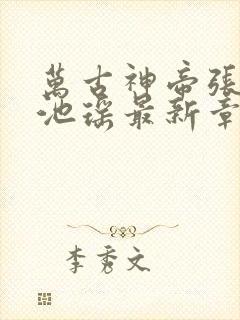 萬古神帝張
池瑤最新章
李秀文